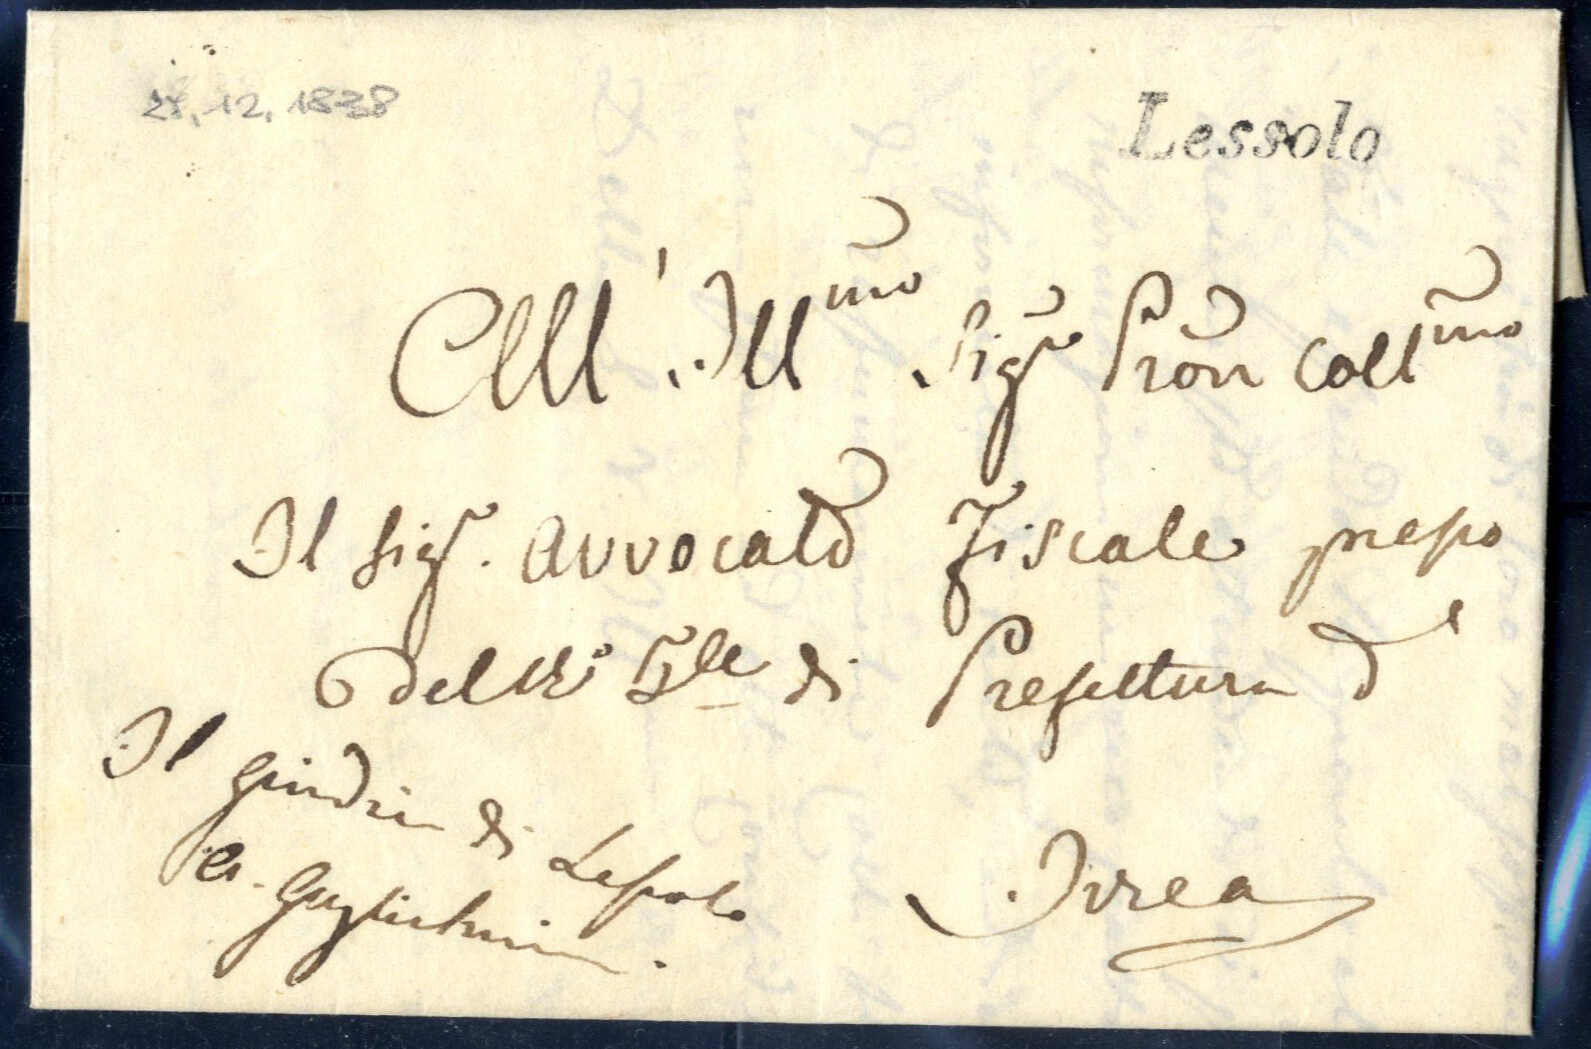 28.12.1838
Lessolo
All' Ill.mo Sig.r Pron Coll.mo
Il Sig.r Avvocato Fiscale presso
del R.o Tle di Prefettura d'
Ivrea
Il Giudice di Lessolo